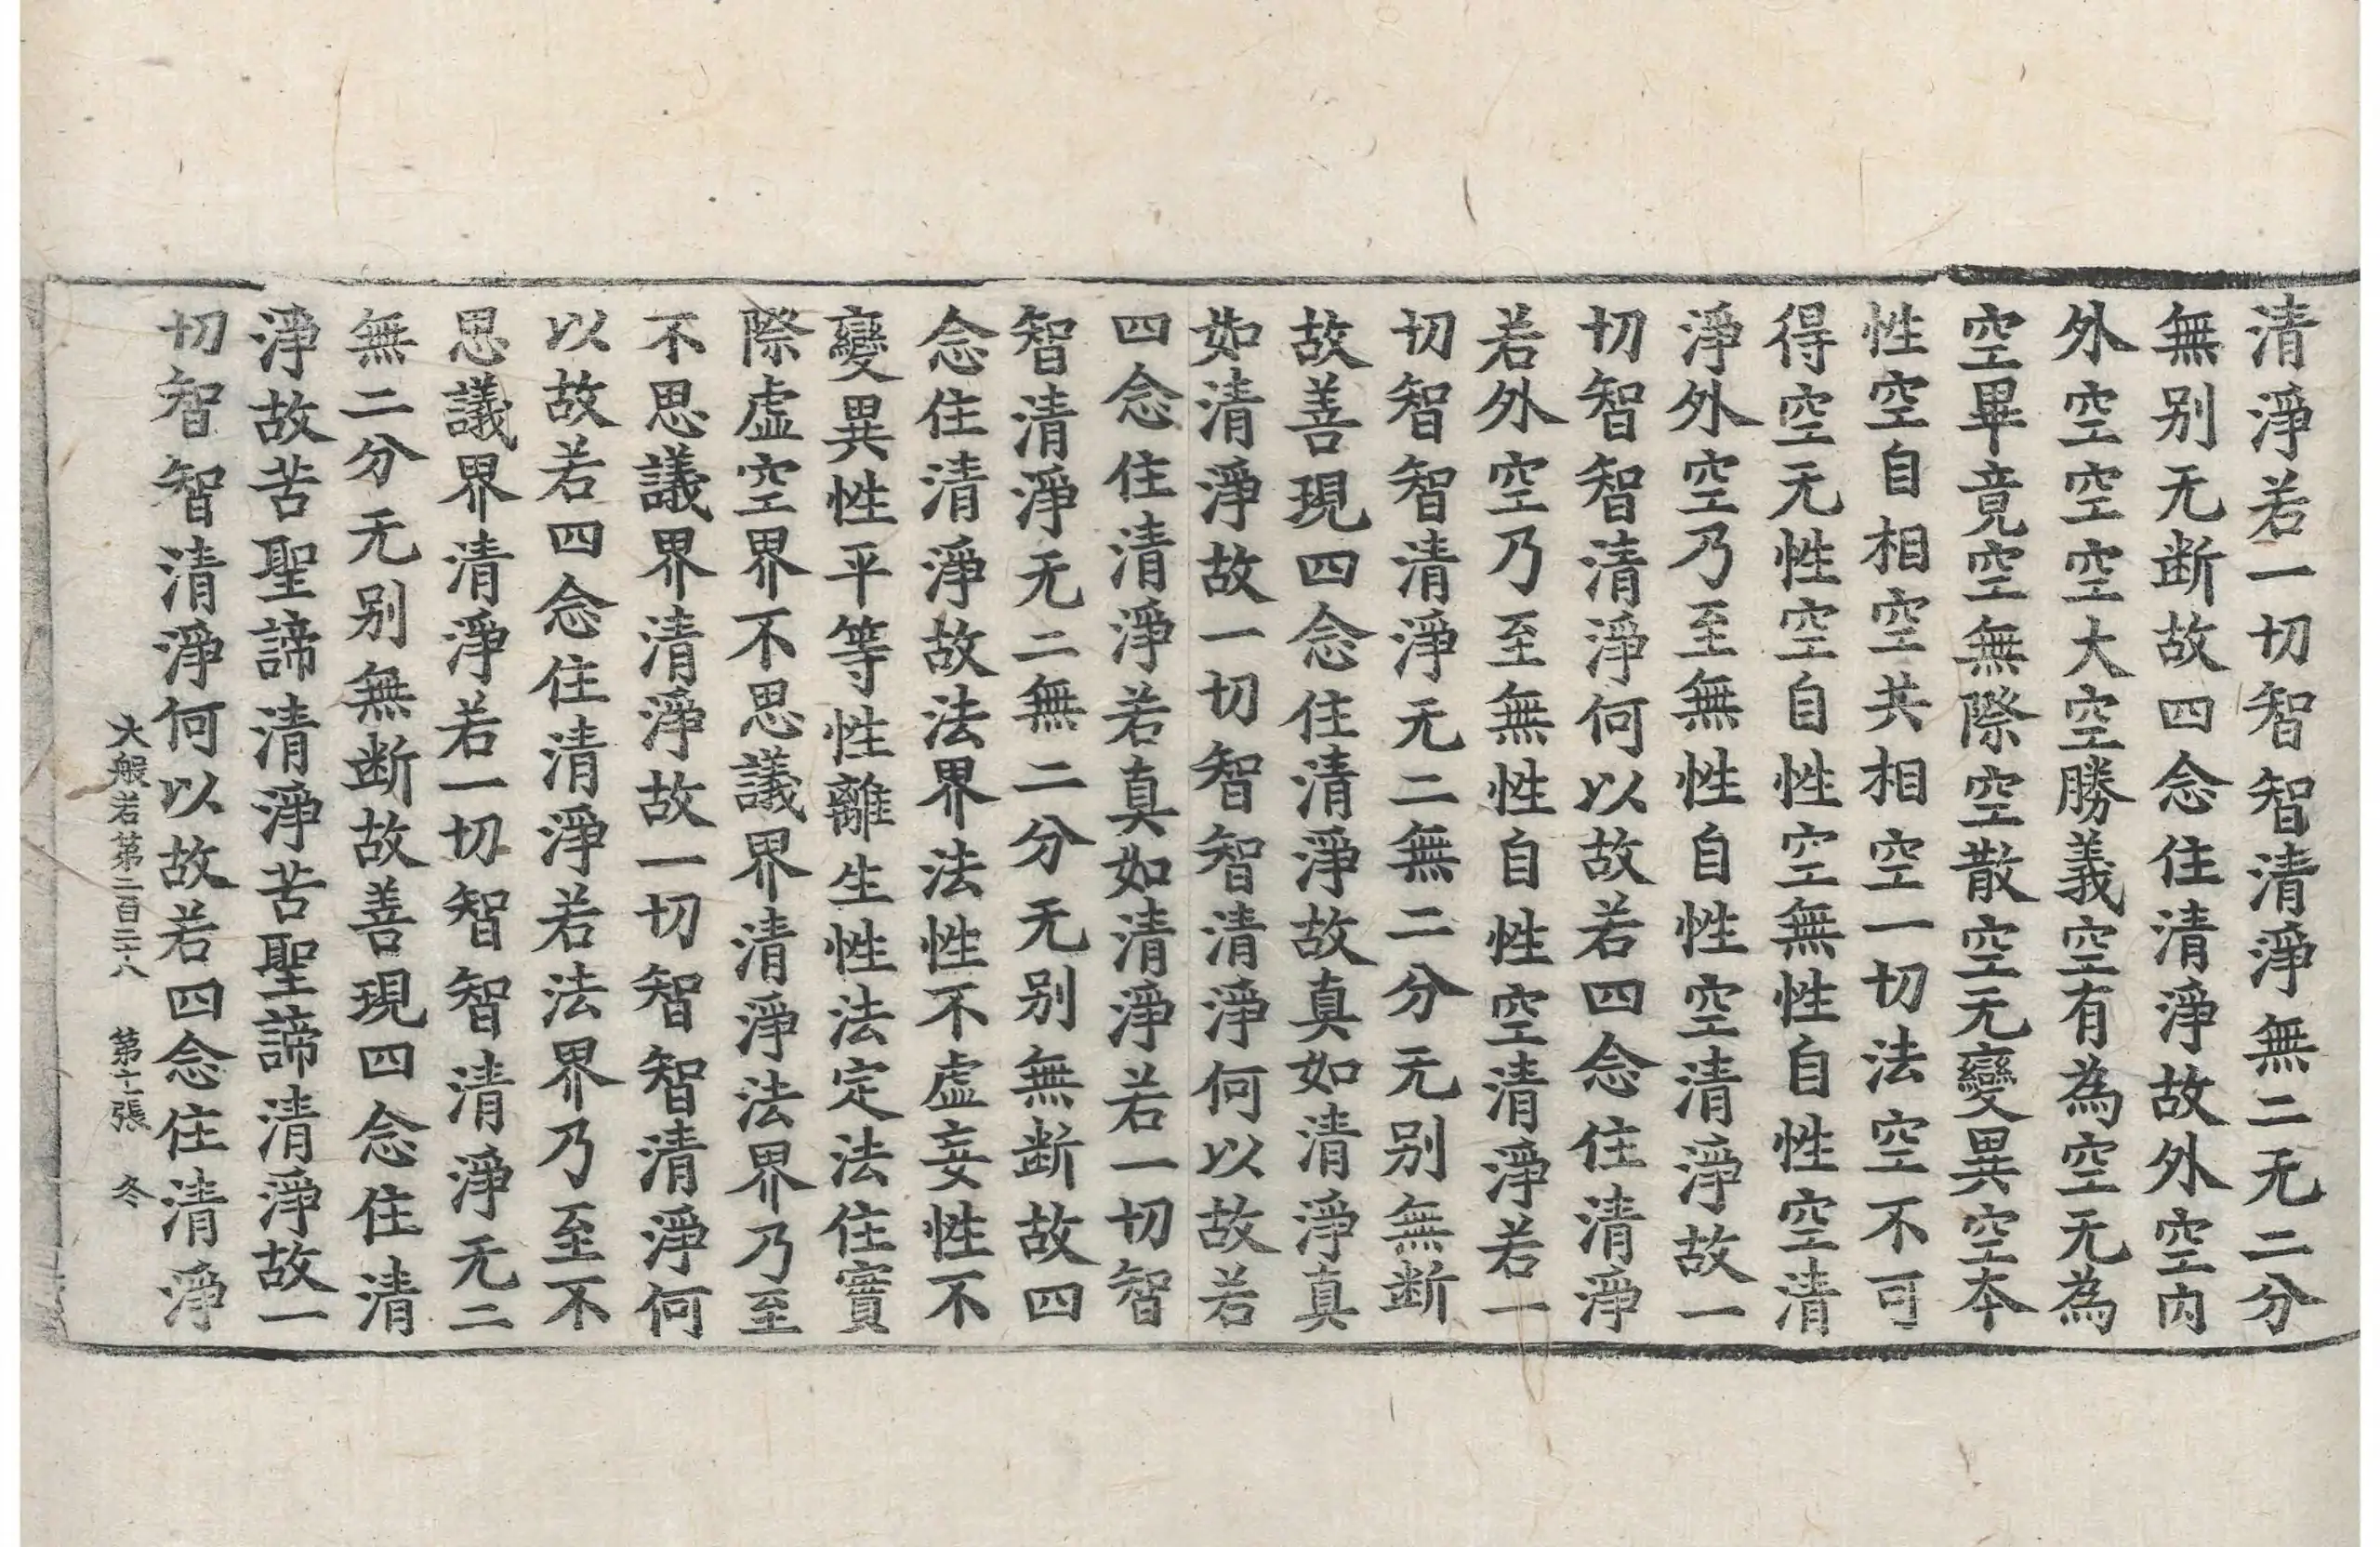 清淨若一切智智清淨無二无二分
無别无断故四念住清淨故外空内
外空空空大空勝義空有為空无為
空畢竟空無際空散空无變異空本
性空自相空共相空一切法空不可
得空无性空自性空無性自性空清
淨外空乃至無性自性空清淨故一
切智智清淨何以故若四念住清淨
若外空乃至無性自性空清淨若一
切智智清淨无二無二分无别無断
故善現四念住清淨故真如清淨真
如清淨故一切智智清淨何以故若
四念住清淨若真如清淨若一切智
智清淨无二無二分无别無断故四
念住清淨故法界法性不虚妄性不
變異性平等性離生性法定法住實
際虚空界不思議界清淨法界乃至
不思議界清淨故一切智智清淨何
以故若四念住清淨若法界乃至不
思議界清淨若一切智智清淨无二
無二分无别無断故善現四念住清
淨故苦聖諦清淨苦聖諦清淨故一
切智智清淨何以故若四念住清淨
大般若第二百二十八 第十二張 冬